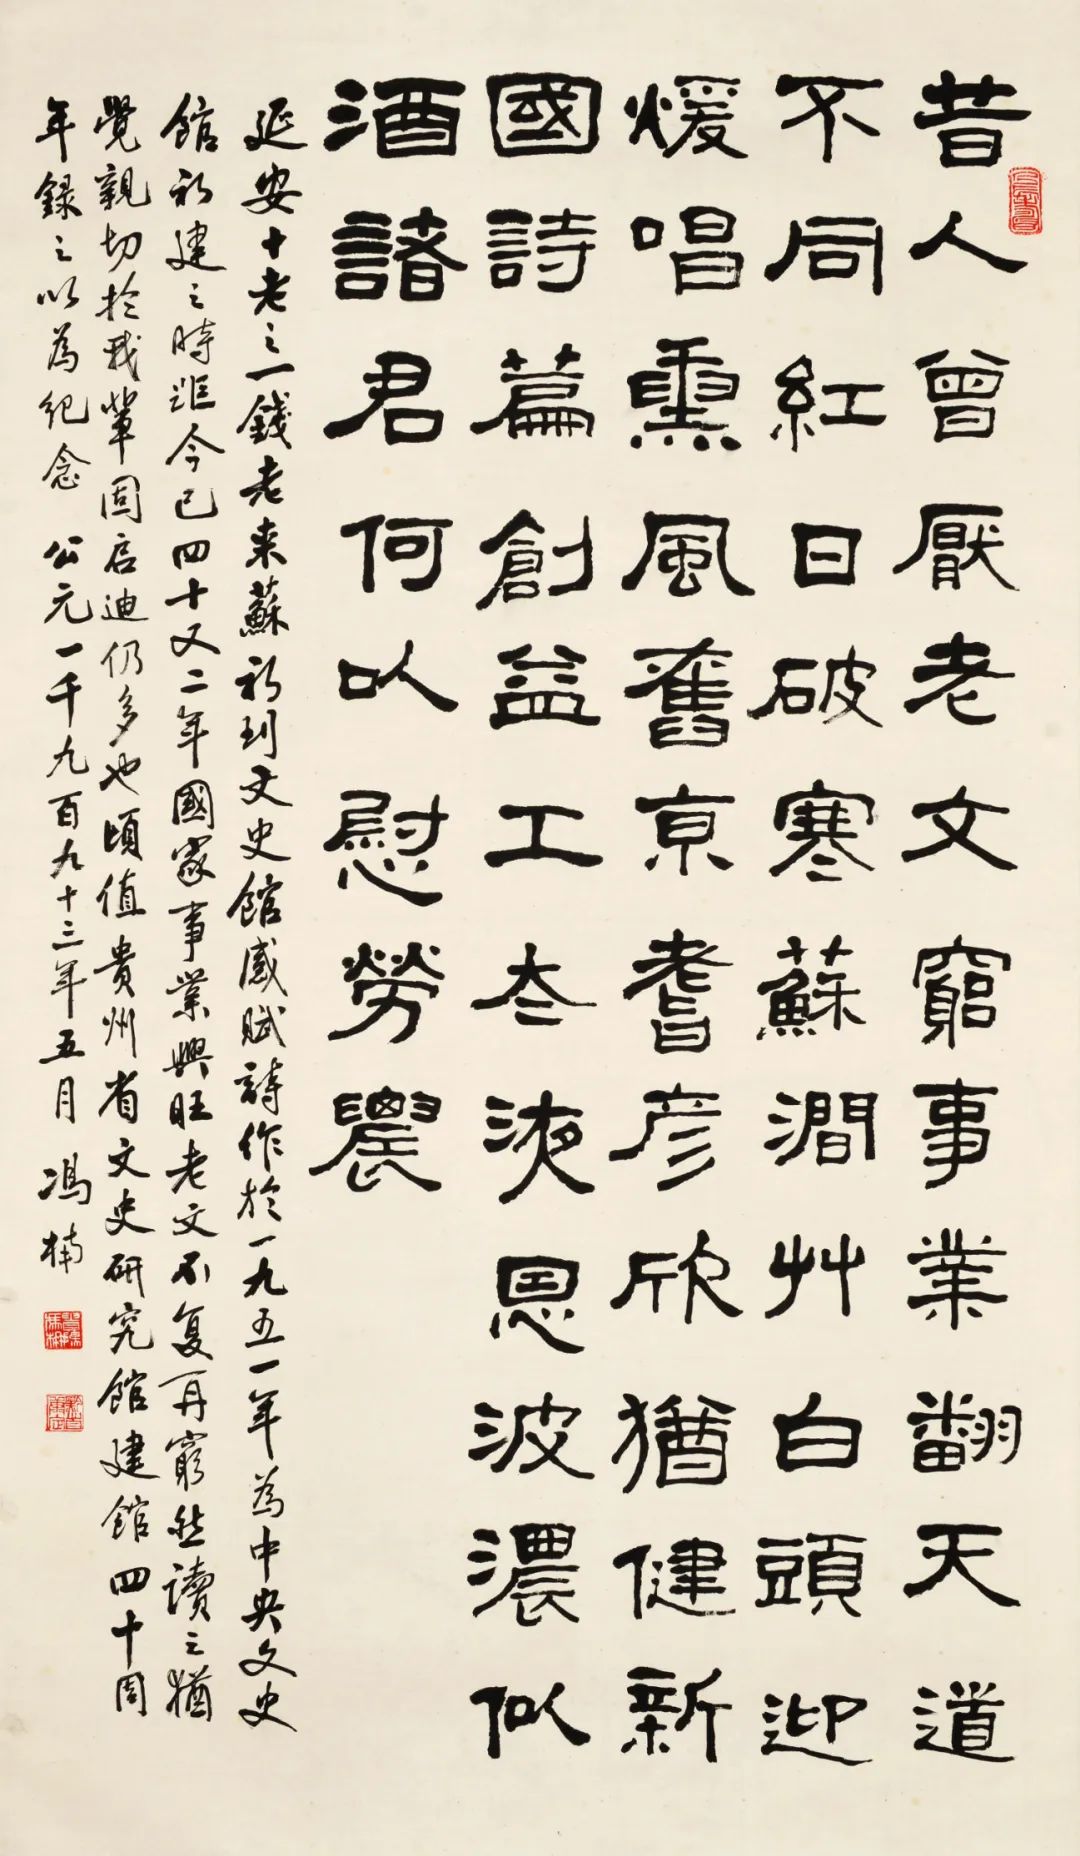 昔人曾厭老文窮事業翻天道
不同紅日破寒蘇澗艸白頭迎
煖唱熏風舊亰耆彥欣猶健新
國詩篇創益工夳液恩波濃似
酒諸君何以慰勞農
延安十老之一錢老来蘇初到文史館感賦詩作於一九五一年為中央文史
館初建之時距今已四十又二年國家事業興旺老文不复再窮然讀之猶
覺親切於我輩固启迪仍多也頃值貴州省文史研究館建館四十周
年録之以為纪念 公元一千九百九十三年五月 馮楠